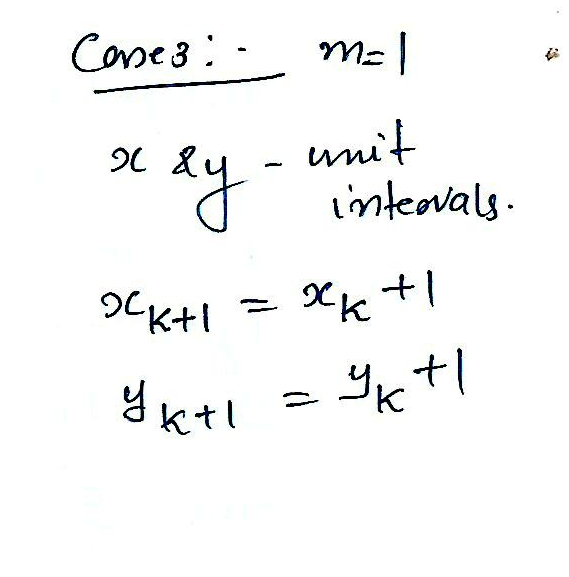 Case 3 :- m = 1
x & y - unit
intervals.
x_{k+1} = x_k + 1
y_{k+1} = y_k + 1